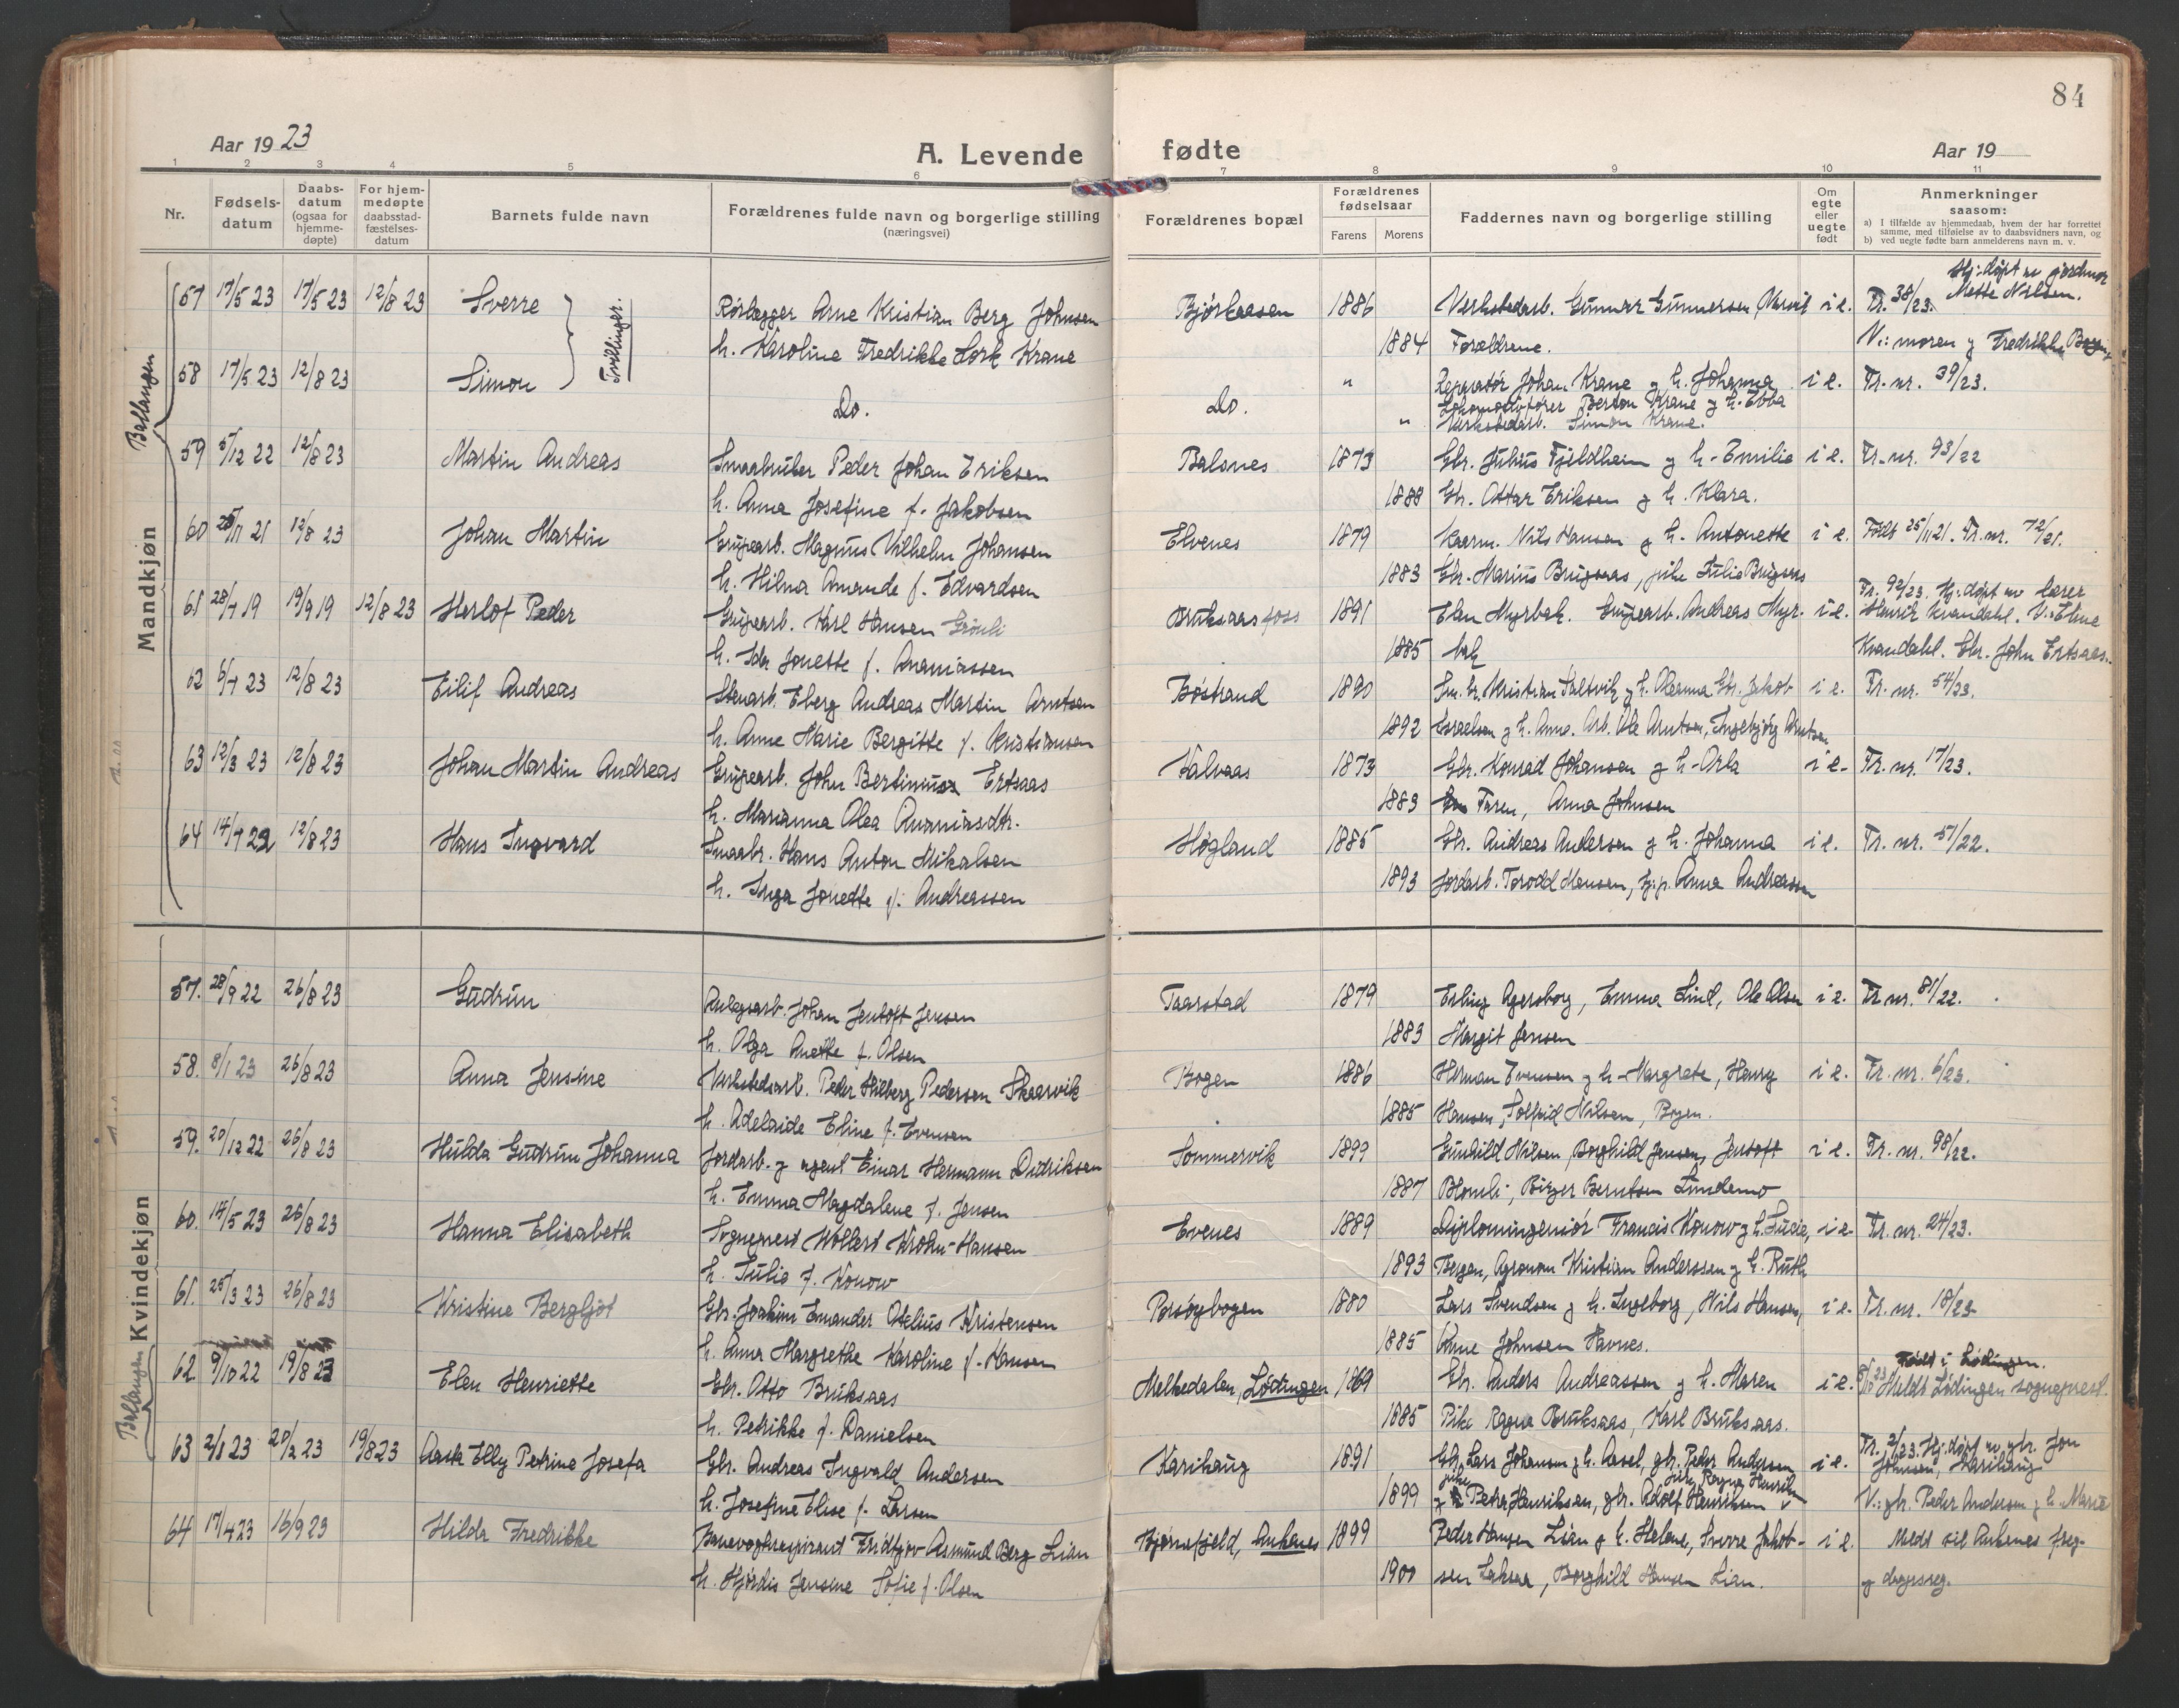 84
Aar 1923 A. Levende fødte Aar 19
1 2 3 4 5 6 7 8 9 10 11
Nr. Fødsels-datum Daabs-datum (ogsaa for hjemme-døpte) For hjem-medøpte daabsstad-fæstelses-datum Barnets fulde navn Forældrenes fulde navn og borgerlige stilling (næringsvei) Forældrenes bopæl Forældrenes fødselsaar Farens Morens Faddernes navn og borgerlige stilling Om egte eller uegte født Anmerkninger saasom:
a) I tilfælde av hjemmedaab, hvem der har forrettet samme, med tilføielse av to daabsvidners navn, og
b) ved uegte fødte barn anmelderens navn m. v.
Ballangen
Mandkjøn
Tvillinger.
Hj: døpt av jordmor
57 17/5 23 17/5 23 12/8 23 Sverre Rørlægger Arne Kristian Berg Johnsen Bjørkaasen 1886 Verkstedarb. Gunnar Gunnersen, Narvik i e. Tr. 38/23. Mette Nilsen.
h. Karoline Fredrikke Lork Krane 1884 Forældrene. V.: moren og Fredrikke
58 17/5 23 12/8 23 Simon Do. Do. " Reparatør Johan Krane og h. Johanna i e. Tr. nr. 39/23.
Lokomotivfører Berton Krane og h. Ebba
" Verkstedarb. Simon Krane.
59 5/12 22 12/8 23 Martin Andreas Smaabruker Peder Johan Eriksen Balsnes 1873 Gbr. Julius Fjeldheim og h. Emilie i e. Tr. nr. 93/22
h. Anna Josefine f. Jakobsen 1888 Gbr. Ottar Eriksen og h. Klara.
60 25/11 21 12/8 23 Johan Martin Grubearb. Magnus Vilhelm Johansen Elvenes 1879 Nils Hansen og h. Antonette i e. Født 25/11 21. Tr. nr. 72/21.
h. Hilma Amanda f. Edvardsen 1883 Gbr. Marius Brugsaas, pike Julie Brugsaas
61 28/7 19 19/9 19 12/8 23 Herlof Peder Grubearb. Karl Hansen Grønli Bruksaasfoss 1891 Elen Myrbak. Grubearb. Andreas Myr- i e. Tr. 92/23. Hj: døpt av lærer
Henrik Kvandahl. V: Eline
h. Ida Jonette f. Ananiassen 1885 bak Kvandahl. Gbr. John Ertsaas.
62 6/7 23 12/8 23 Eilif Andreas Stenarb. Eberg Andreas Martin Arntsen Bøstrand 1890 Sm.br. Kristian Saltvik og h. Oleanna Gbr. Jakob i e. Tr. nr. 54/23.
h. Anne Marie Bergitte f. Kristiansen 1892 Esraelsen og h. Anna. Arb. Ole Arntsen, Ingebjørg Arntsen
63 12/3 23 12/8 23 Johan Martin Andreas Grubearb. John Bertinius Ertsaas Kalvaas 1873 Gbr. Konrad Johansen og h. Orla i e. Tr. nr. 17/23.
h. Marianna Olea Ananiasdtr. 1883 Faren, Anna Johnsen
64 14/7 22 12/8 23 Hans Ingvard Smaabr. Hans Anton Mikalsen Høgland 1885 Gbr. Andreas Andersen og h. Johanna i e. Tr. nr. 51/22.
h. Inga Jonette f. Andreassen 1893 Jordarb. Torodd Hansen, Anna Andreassen
Kvindekjøn
57. 28/9 22 26/8 23 Gudrun Anlegsarb. Johan Jentoft Jensen Taarstad 1879 Erling Agersborg, Emma Lind, Ole Olsen i e. Tr. nr. 81/22.
h. Olga Anette f. Olsen 1883 Margit Jensen
58. 8/1 23 26/8 23 Anna Jensine Verkstedsarb. Peder Hilberg Pedersen Skaarvik Bogen 1886 Herman Evensen og h. Margrete, Henry i e. Tr. nr. 6/23.
h. Adelaide Eline f. Evensen 1885 Hansen, Solfrid Nilsen, Bogen.
59. 20/12 22 26/8 23 Hulda Gudrun Johanna Jordarb. og agent Einar Hermann Didriksen Sommervik 1899 Gunhild Nilsen, Borghild Jensen, Jentoft i e. Tr. nr. 98/22.
h. Emma Magdalene f. Jensen 1887 Blomli, Birger Berntsen Lundemo
60. 14/5 23 26/8 23 Hanna Elisabeth Sogneprest Wollert Krohn-Hansen Evenes 1889 Diplomingeniør Francis Konow og h. Lucie, i e. Tr. nr. 24/23.
h. Julie f. Konow 1893 Bergen, Agronom Kristian Anderssen og h. Ruth
61. 25/3 23 26/8 23 Kristine Bergljot Gbr. Joakim Emander Otelius Kristensen Porsøybogen 1880 Lars Svendsen og h. Ingeborg, Nils Hansen, i e. Tr. nr. 18/23
h. Anna Margrethe Karoline f. Hansen 1885 Anne Johnsen Havnes.
Ballangen
Født i Lødingen.
62 9/10 22 19/8 23 Elen Henriette Gbr. Otto Bruksaas Melkedalen, Lødingen 1869 Gbr. Anders Andreassen og h. Maren i e. Meldt Lødingen sogneprest.
h. Petrikke f. Danielsen 1885 Pike Ragna Bruksaas, Karl Bruksaas.
63 2/1 23 20/2 23 19/8 23 Aasta Elly Petrine Josefa Gbr. Andreas Ingvald Andersen Karihaug 1891 Gbr. Lars Johansen og h. Aasel, gbr. Peder Andersen i e. Tr. 2/23. Hj: døpt av gbr. Jon
Johnsen, Karihaug
h. Josefine Elise f. Larsen 1899 pike Petra Henriksen, gbr. Adolf Henriksen pike Ragna Henriksen V.: gbr. Peder Andersen og h. Marie
64 17/4 23 16/9 23 Hilda Fredrikke Banevogteraspirant Fridtjov Asmund Berg Lian Bjørnefjeld, Ankenes 1899 Peder Hansen Lian og h. Helene, Sverre Jakob- i e. Meldt til Ankenes
h. Hjørdis Jensine Sofie f. Olsen 1900 sen Laksaa, Borghild Hansen Lian. og dagsreg.